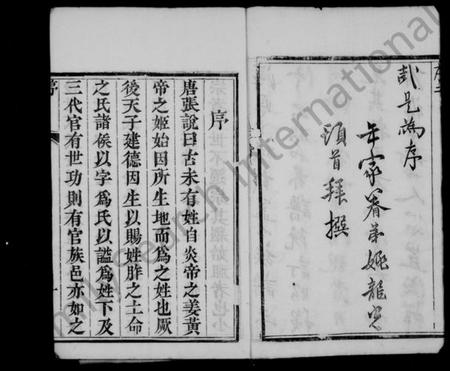 或是為序
年家眷弟姚龍光
頓首拜撰
序
唐張說曰古未有姓自炎帝之姜黃
帝之姬始因所生地而為之姓也厥
後天子建德因生以賜姓胙之土命
之氏諸侯以字為氏以謚為姓下及
三代官有世功則有官族邑亦如之
序
一
FamilySearch International